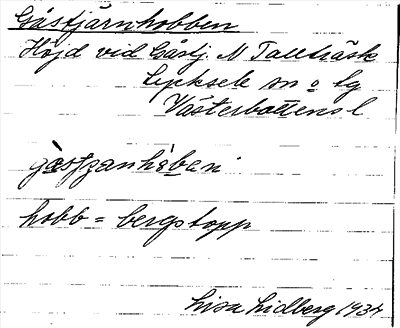 Gåstjärnhobben
Höjd vid Gåstj. N Tallträsk
Lycksele sn o lg
Västerbottens l
hobb = bergstopp
Lisa Lidberg 1934